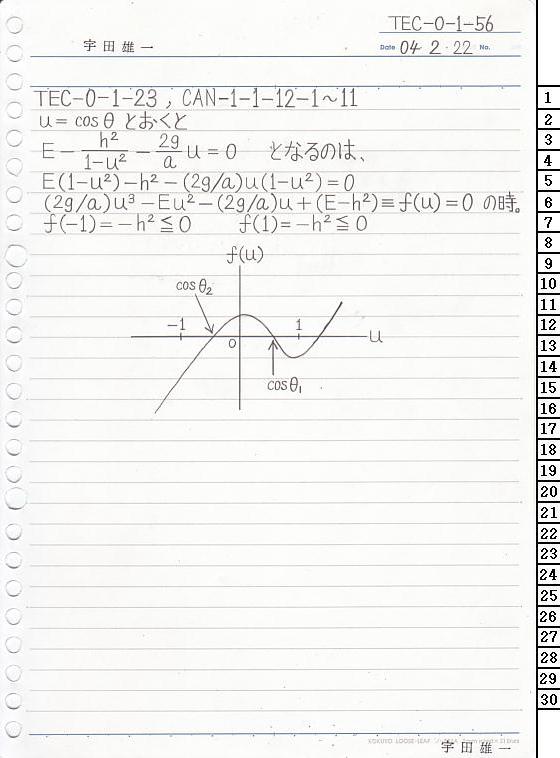 TEC-0-1-56
宇田雄一
Date 04 2・22 No.
TEC-0-1-23, CAN-1-1-12-1~11
u = cosθ とおくと
E - h²/(1-u²) - (2g/a) u = 0 となるのは、
E(1-u²)-h²-(2g/a)u(1-u²)=0
(2g/a)u³-Eu²-(2g/a)u+(E-h²)≡f(u)=0 の時。
f(-1)=-h²≦0 f(1)=-h²≦0
f(u)
cosθ₂
-1 0 1 u
cosθ₁
KOKUYO LOOSE-LEAF
宇田雄一
1
2
3
4
5
6
7
8
9
10
11
12
13
14
15
16
17
18
19
20
21
22
23
24
25
26
27
28
29
30